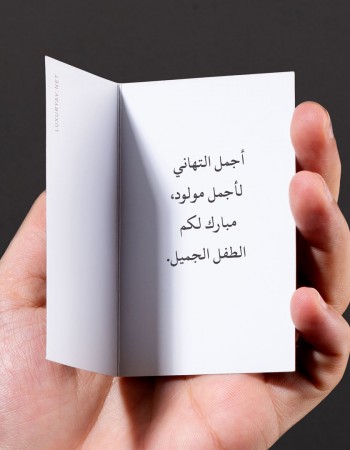 أجمل التهاني
لأجمل مولود،
مبارك لكم
الطفل الجميل.
LUXURYBY.NET